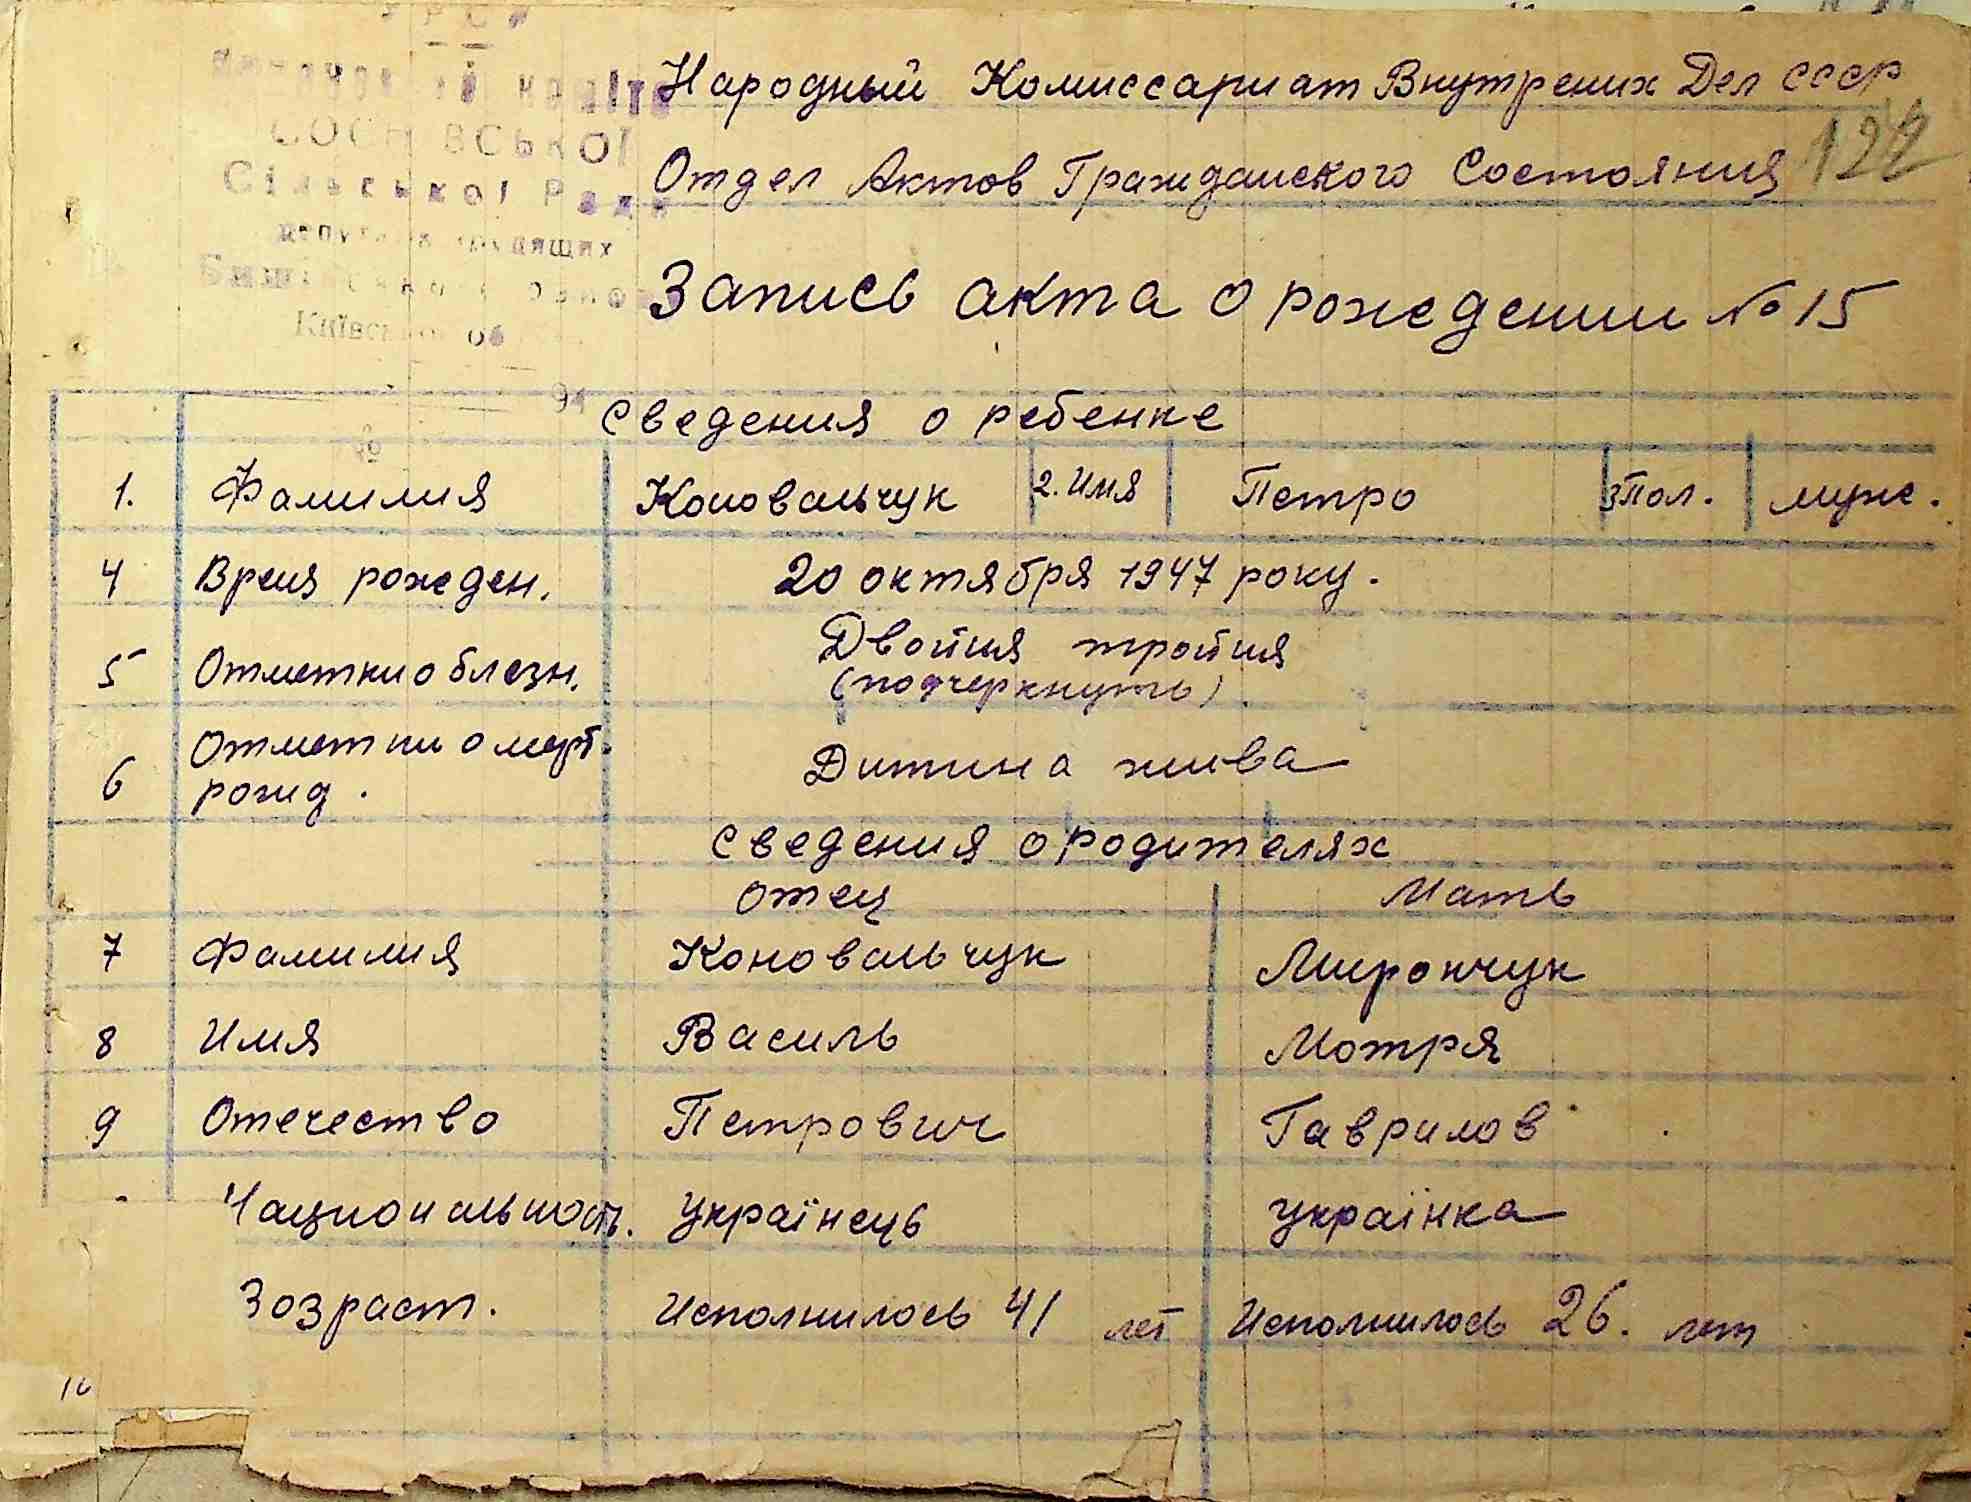 УРСР
Виконавчий комітет
СОСНІВСЬКОЇ
Сільської Ради
депутатів трудящих
Київської об
Народный Комиссариат Внутрених Дел СССР
122
Отдел Актов Гражданского Состояния
Запись акта о рождении № 15
Сведения о ребенке
1. Фамилия Коновальчук 2. Имя Петро 3 Пол. муж.
4 Время рожден. 20 октября 1947 року.
5 Отметки о близн. Двойня тройня
(подчеркнуть)
6 Отметки о мерт. рожд. Дитина жива
Сведения о родителях
Отец Мать
7 Фамилия Коновальчук Мирончук
8 Имя Василь Мотря
9 Отечество Петрович Гаврилов
Национальность. Українець Українка
Возраст. Исполнилось 41 лет Исполнилось 26. лет
10